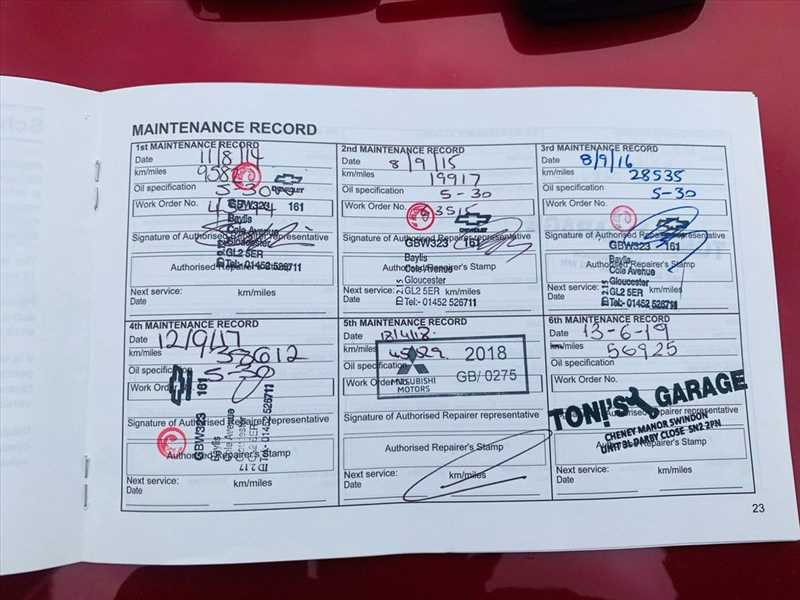 MAINTENANCE RECORD
1st MAINTENANCE RECORD
Date 11/8/14
km/miles
Oil specification
Work Order No.
CHEVROLET
GBW323 161
Baylis
Cole Avenue
Gloucester
GL2 5ER
Tel:- 01452 526711
Signature of Authorised Repairer representative
Authorised Repairer's Stamp
Next service: km/miles
Date
2nd MAINTENANCE RECORD
Date 8/9/15
km/miles 19917
Oil specification 5-30
Work Order No. 63515
CHEVROLET
Signature of Authorised Repairer representative
GBW323 161
Baylis
Cole Avenue
Gloucester
GL2 5ER
Tel:- 01452 526711
ID 215
Authorised Repairer's Stamp
Next service: km/miles
Date
3rd MAINTENANCE RECORD
Date 8/9/16
km/miles 28535
Oil specification 5-30
Work Order No.
Signature of Authorised Repairer representative
GBW323 161
Baylis
Cole Avenue
Gloucester
GL2 5ER
Tel:- 01452 526711
ID 215
Authorised Repairer's Stamp
Next service: km/miles
Date
4th MAINTENANCE RECORD
Date 12/9/17
km/miles 38612
Oil specification 5-30
Work Order No.
Signature of Authorised Repairer representative
GBW323 161
Baylis
Cole Avenue
Gloucester
GL2 5ER
Tel:- 01452 526711
ID 217
Authorised Repairer's Stamp
Next service: km/miles
Date
5th MAINTENANCE RECORD
Date
km/miles
Oil specification
Work Order No.
MITSUBISHI
MOTORS
2018
GB/ 0275
Signature of Authorised Repairer representative
Authorised Repairer's Stamp
Next service: km/miles
Date
6th MAINTENANCE RECORD
Date 13-6-19
km/miles 56925
Oil specification
Work Order No.
TONI'S GARAGE
Signature of Authorised Repairer representative
CHENEY MANOR SWINDON
UNIT 3L DARBY CLOSE SN2 2PN
Authorised Repairer's Stamp
Next service: km/miles
Date
23